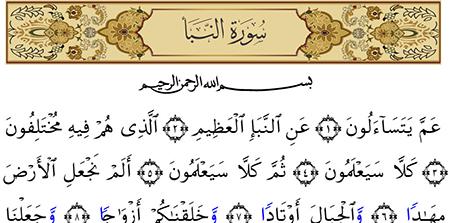 سُورَةُ النَّبَإِ
بسم الله الرحمن الرحيم
عَمَّ يَتَسَآءَلُونَ ﴿١﴾ عَنِ ٱلنَّبَإِ ٱلۡعَظِيمِ ﴿٢﴾ ٱلَّذِى هُمۡ فِيهِ مُخۡتَلِفُونَ
﴿٣﴾ كَلَّا سَيَعۡلَمُونَ ﴿٤﴾ ثُمَّ كَلَّا سَيَعۡلَمُونَ ﴿٥﴾ أَلَمۡ نَجۡعَلِ ٱلۡأَرۡضَ
مِهَـٰدًا ﴿٦﴾ وَٱلۡجِبَالَ أَوۡتَادًا ﴿٧﴾ وَخَلَقۡنَـٰكُمۡ أَزۡوَٲجًا ﴿٨﴾ وَجَعَلۡنَا